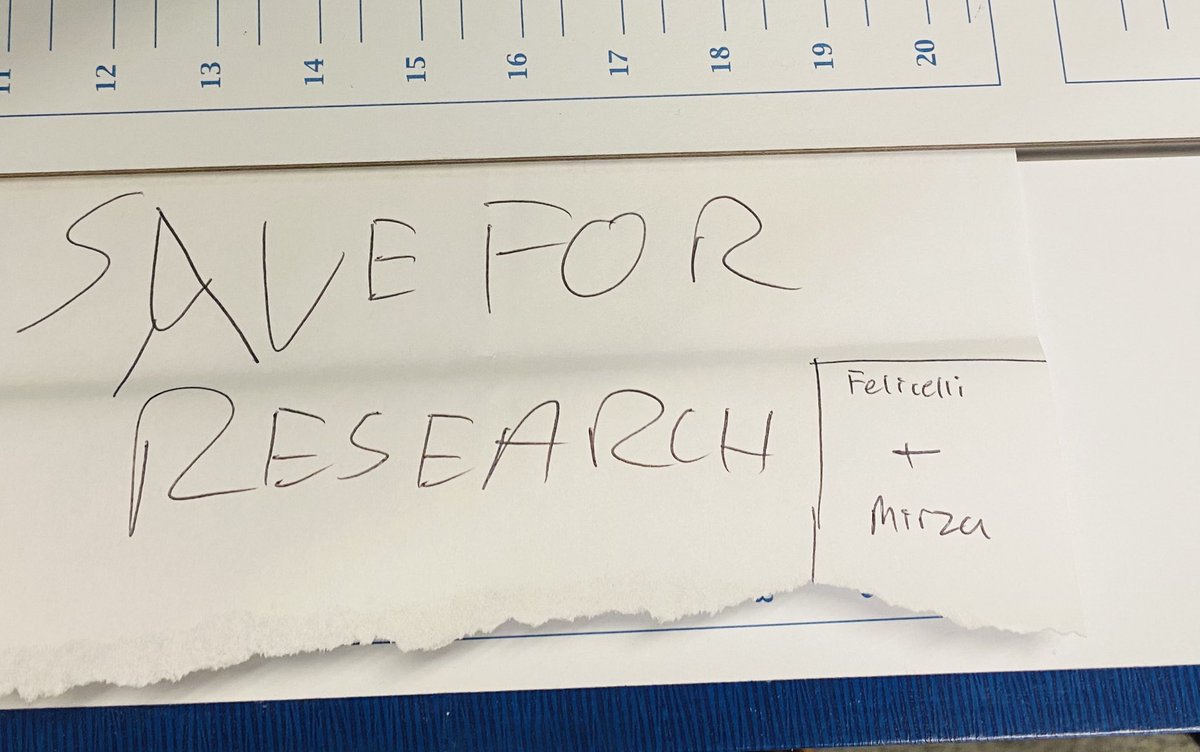 11 12 13 14 15 16 17 18 19 20
SAVE FOR
RESEARCH
Felicelli
+
Mirza